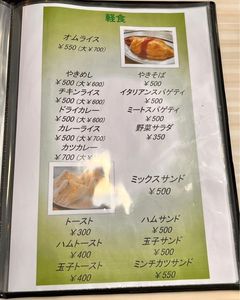 軽食
オムライス
￥550 (大￥700)
やきめし
￥500 (大￥600)
チキンライス
￥500 (大￥600)
ドライカレー
￥500 (大￥600)
カレーライス
￥500 (大￥700)
カツカレー
￥700 (大
やきそば
￥500
イタリアンスパゲティ
￥500
ミートスパゲティ
￥500
野菜サラダ
￥350
ミックスサンド
￥500
トースト
￥300
ハムトースト
￥400
玉子トースト
￥400
ハムサンド
￥500
玉子サンド
￥500
ミンチカツサンド
￥550